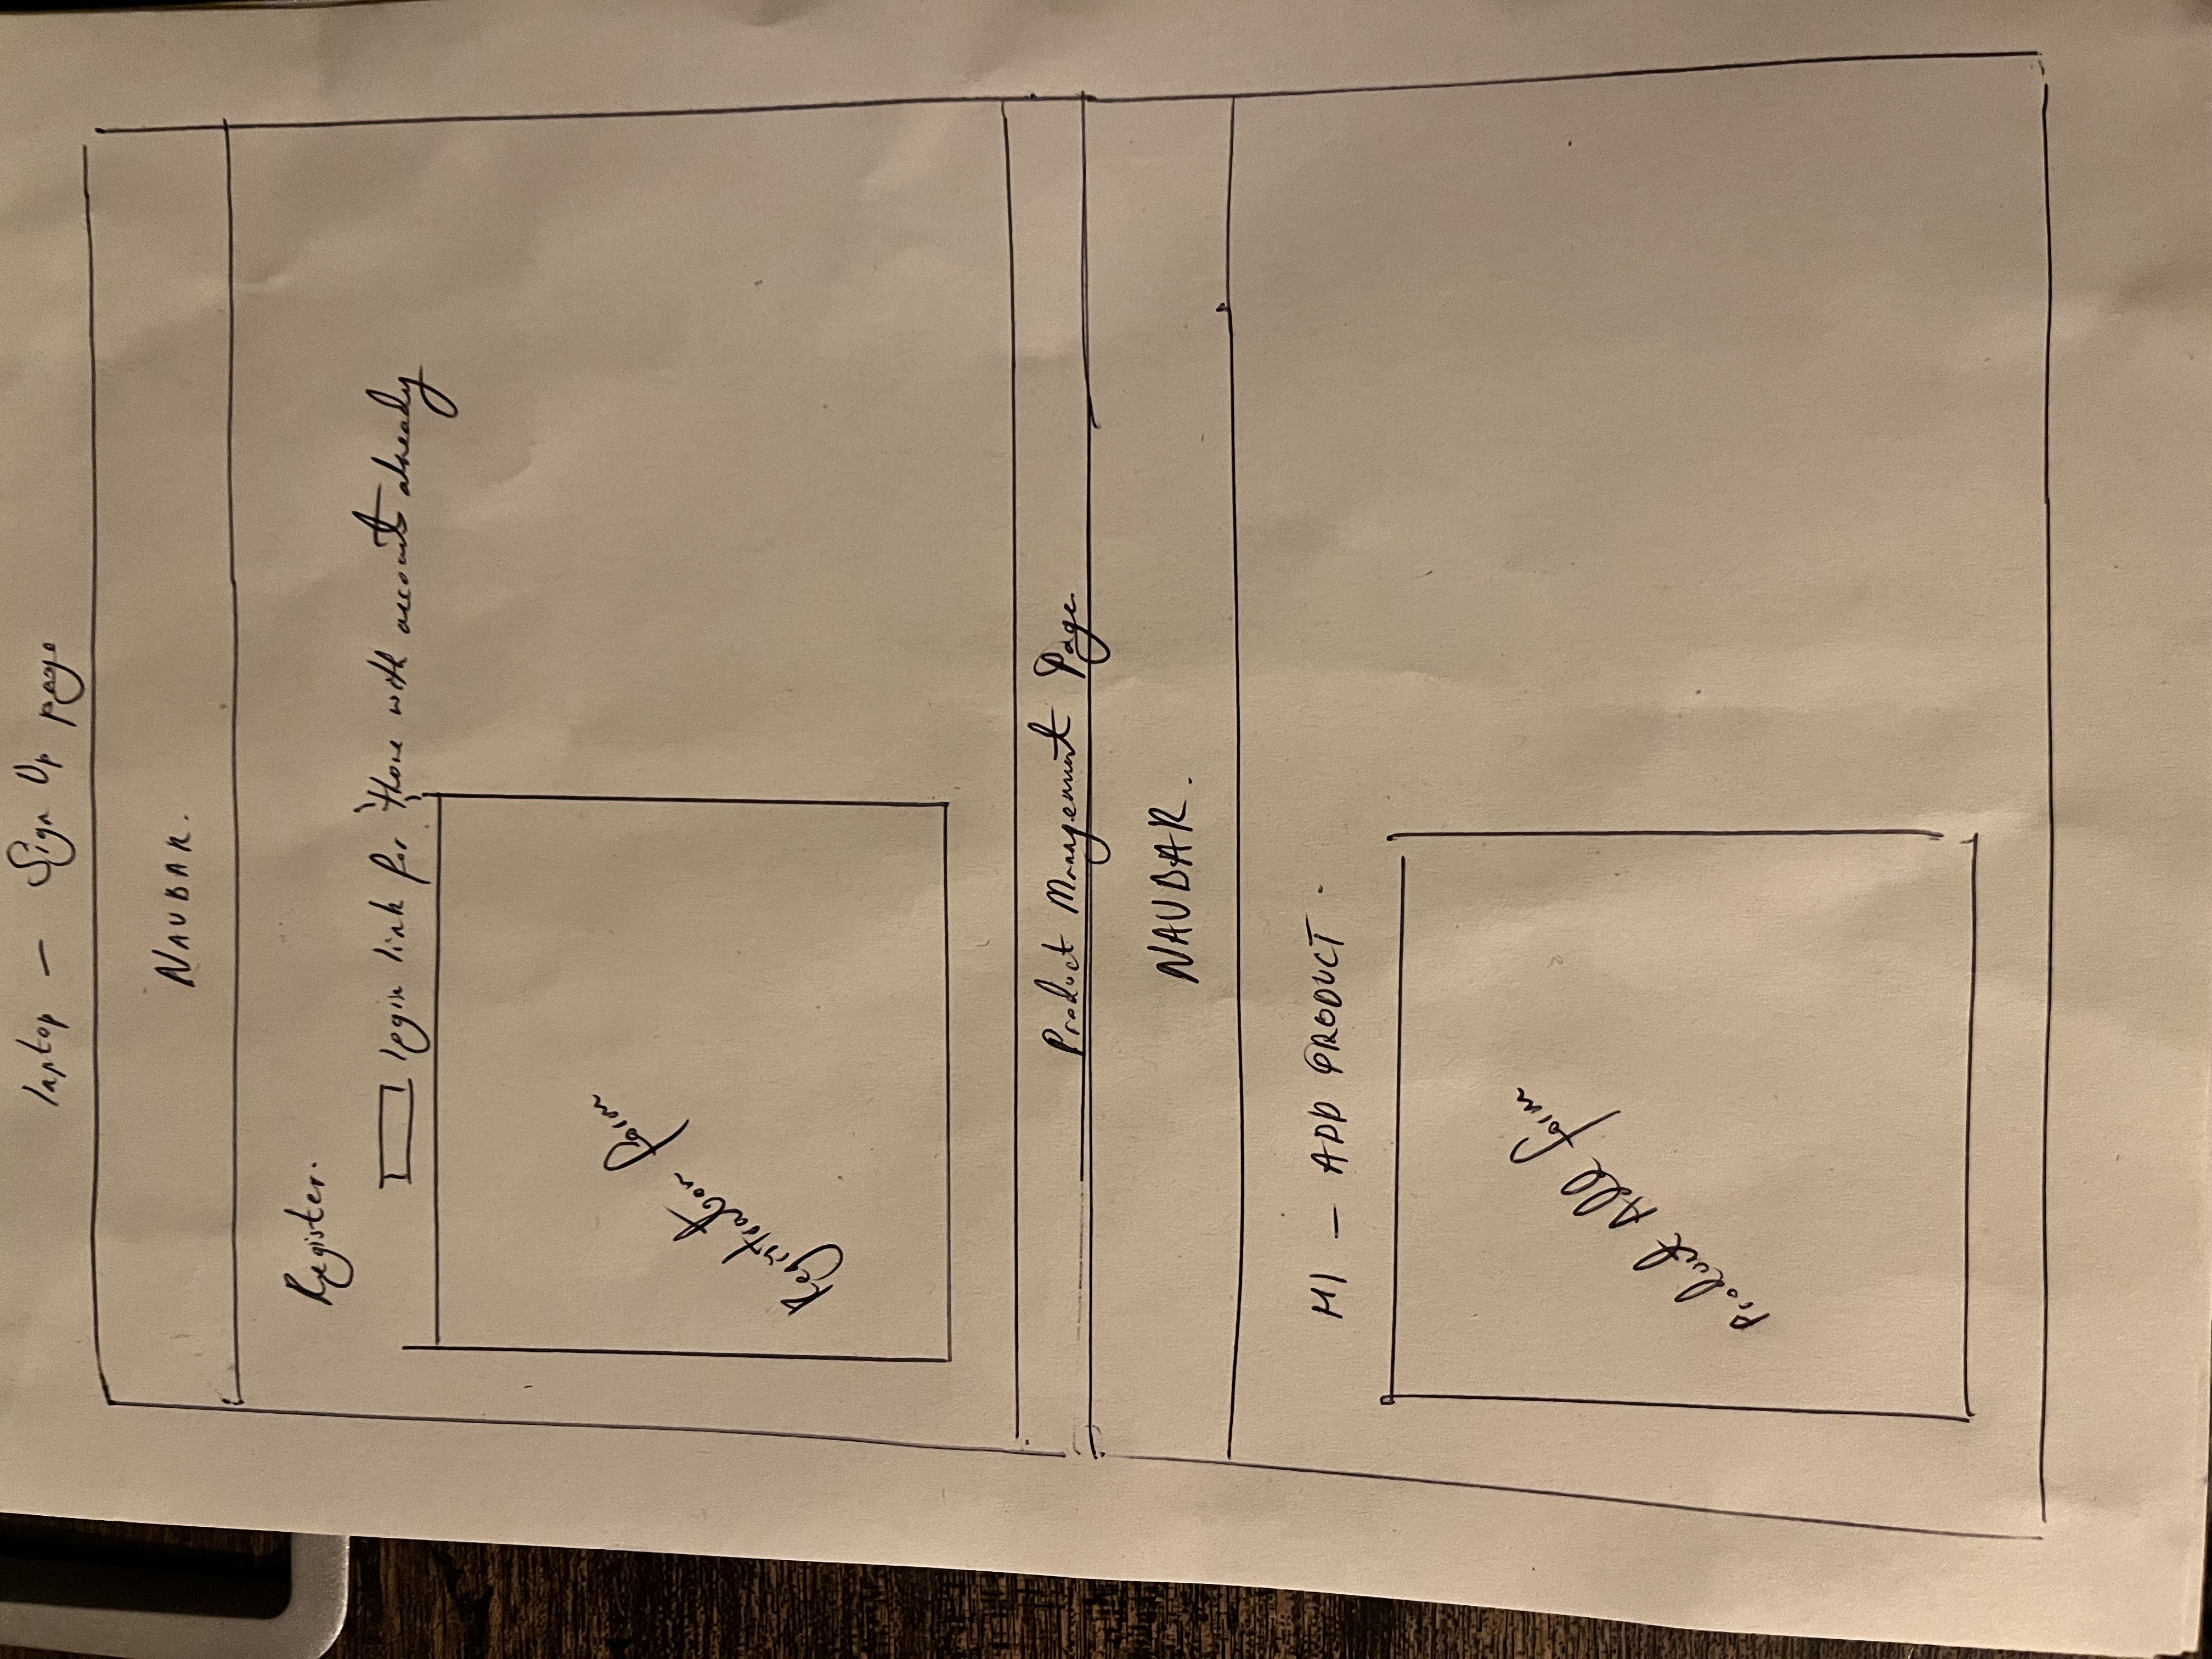 laptop — Sign Up page
NAVBAR.
Register.
login link for those with accounts already
Registration form
Product Management Page
NAVBAR.
H1 — ADD PRODUCT
Product Add form